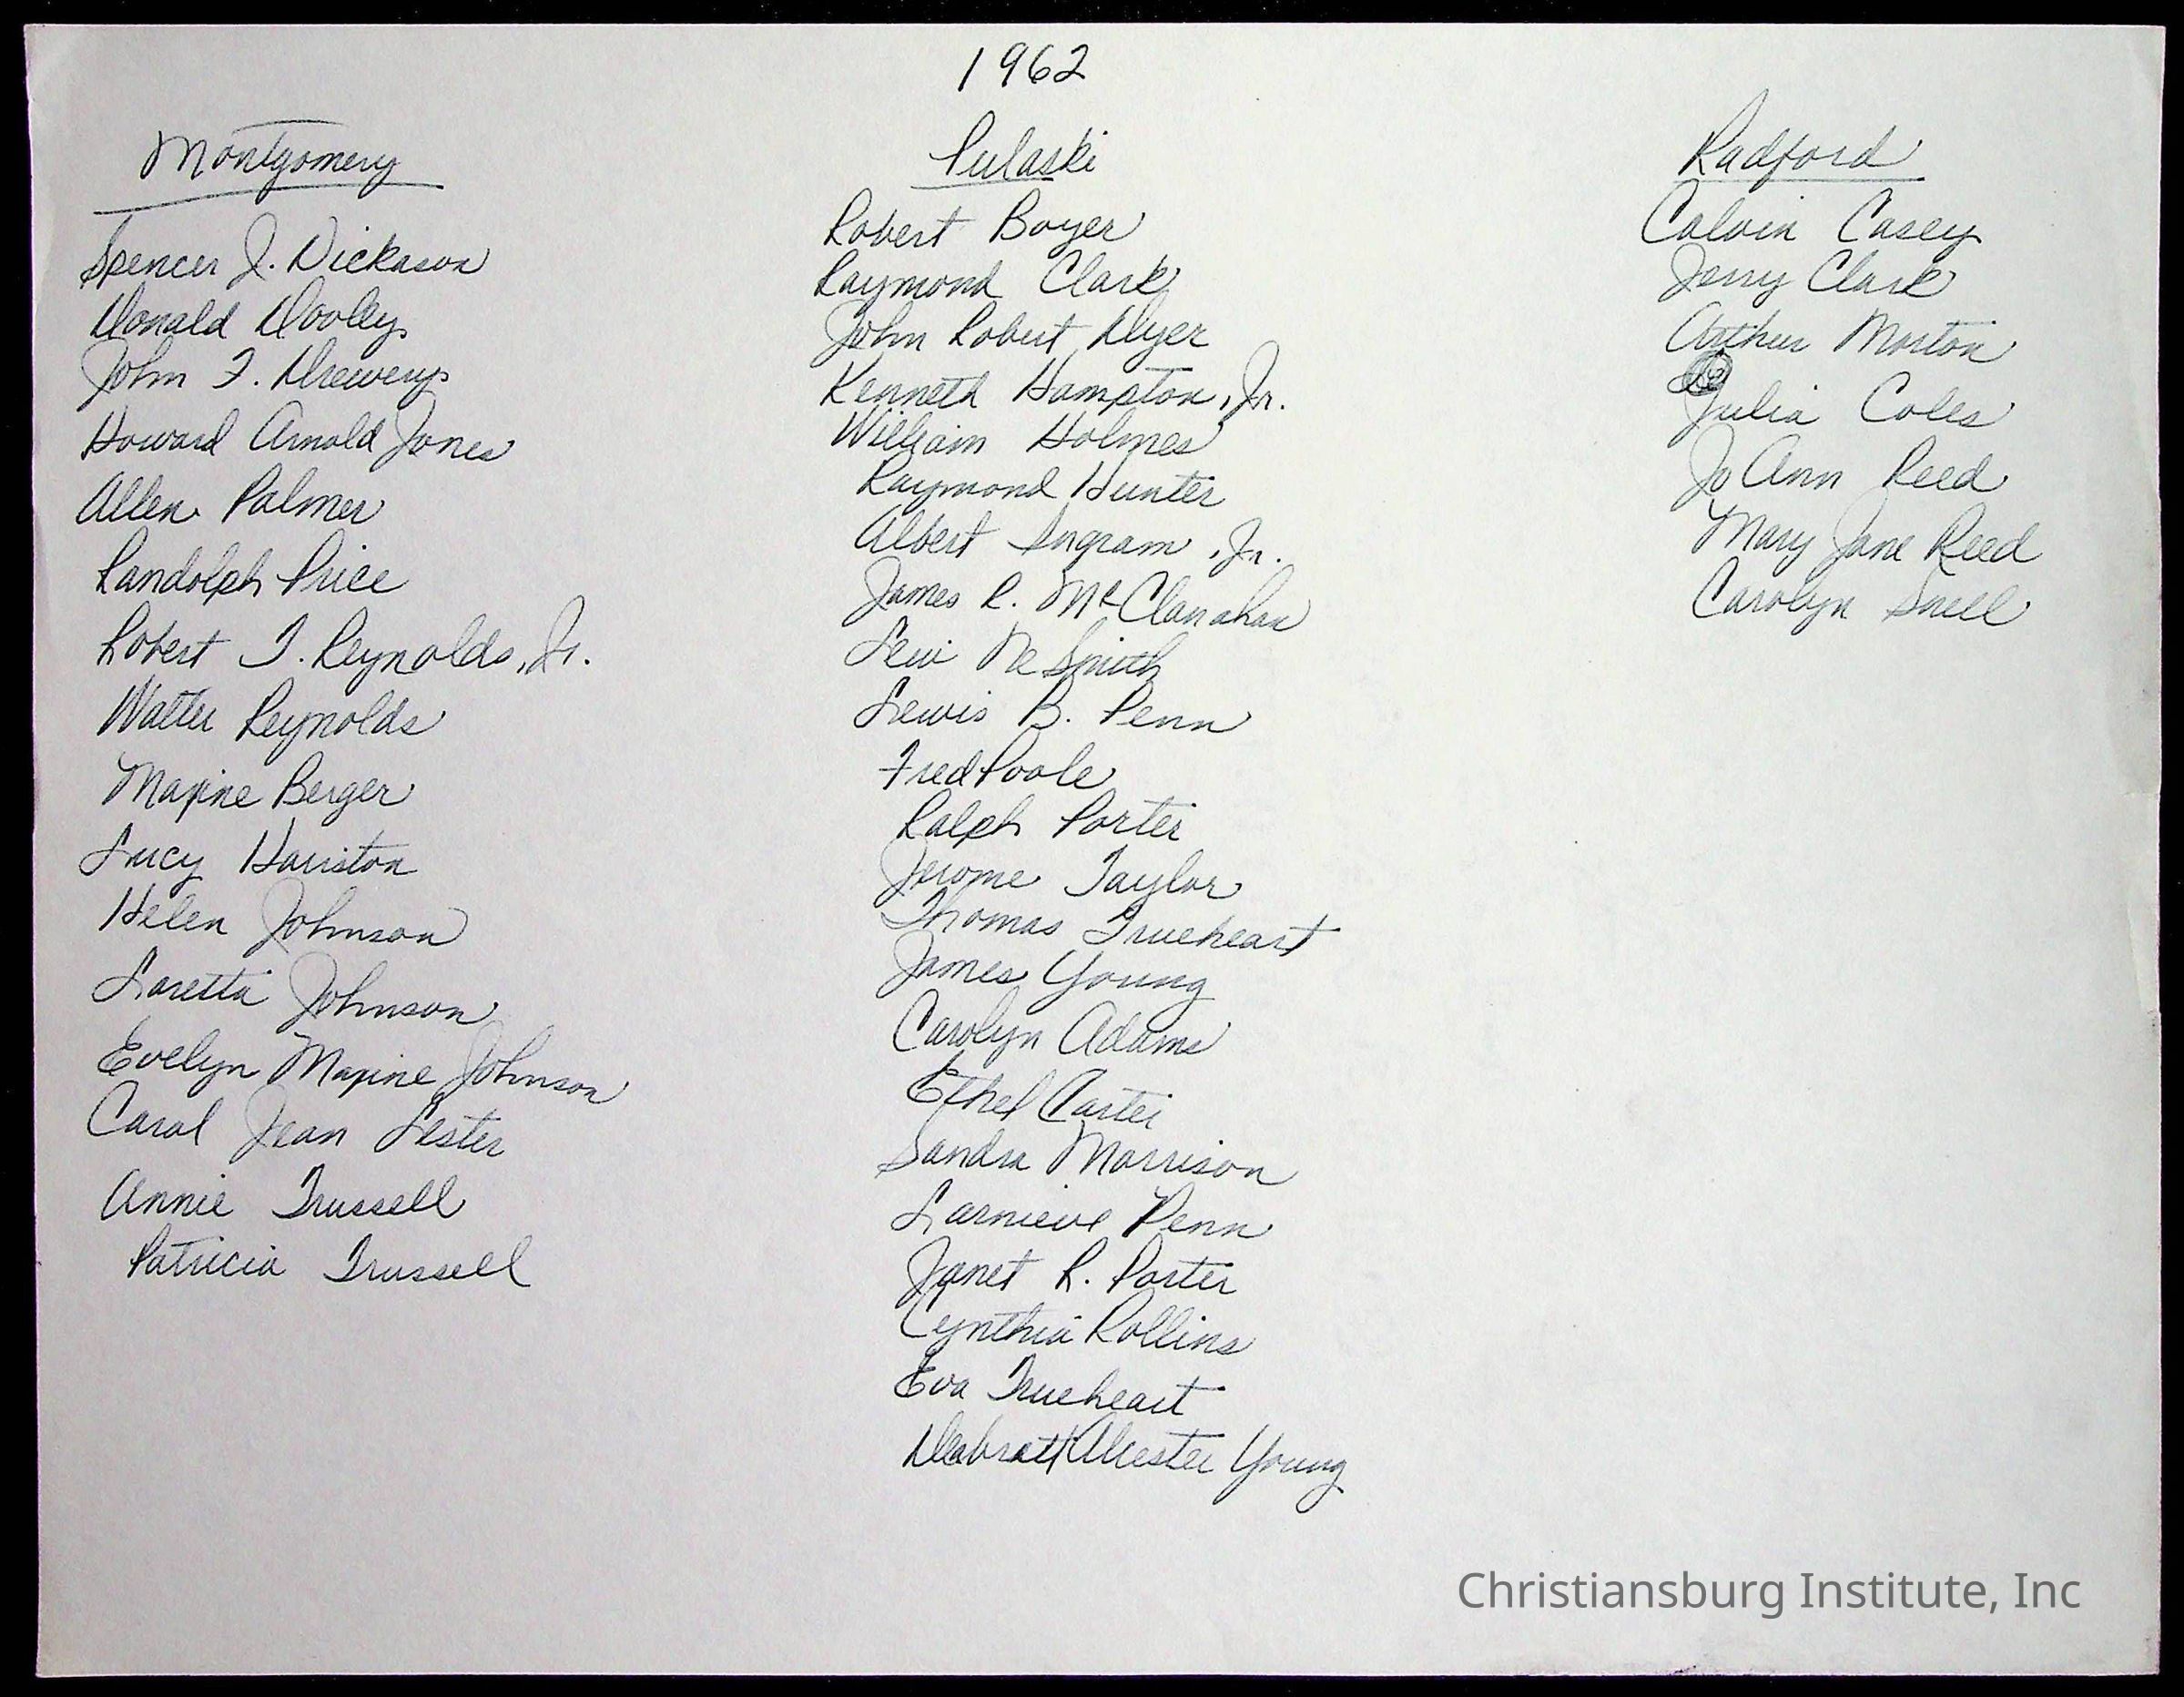 1962
Montgomery
Spencer J. Dickason
Donald Dooley
John F. Drewery
Howard Arnold Jones
Allen Palmer
Randolph Price
Robert T. Reynolds, Jr.
Walter Reynolds
Maxine Berger
Lucy Hairston
Helen Johnson
Loretta Johnson
Evelyn Maxine Johnson
Carol Jean Lester
Annie Trussell
Patricia Trussell
Pulaski
Robert Boyer
Raymond Clark
John Robert Dyer
Kenneth Hampton, Jr.
William Holmes
Raymond Hunter
Albert Ingram, Jr.
James R. McClanahan
Levi NeSmith
Lewis B. Penn
Fred Poole
Ralph Porter
Jerome Taylor
Thomas Trueheart
James Young
Carolyn Adams
Ethel Carter
Sandra Morrison
Larnieve Penn
Janet R. Porter
Cynthia Rollins
Eva Trueheart
Young
Radford
Calvin Casey
Jerry Clark
Arthur Morton
Julia Coles
Jo Ann Reed
Mary Jane Reed
Carolyn Snell
Christiansburg Institute, Inc